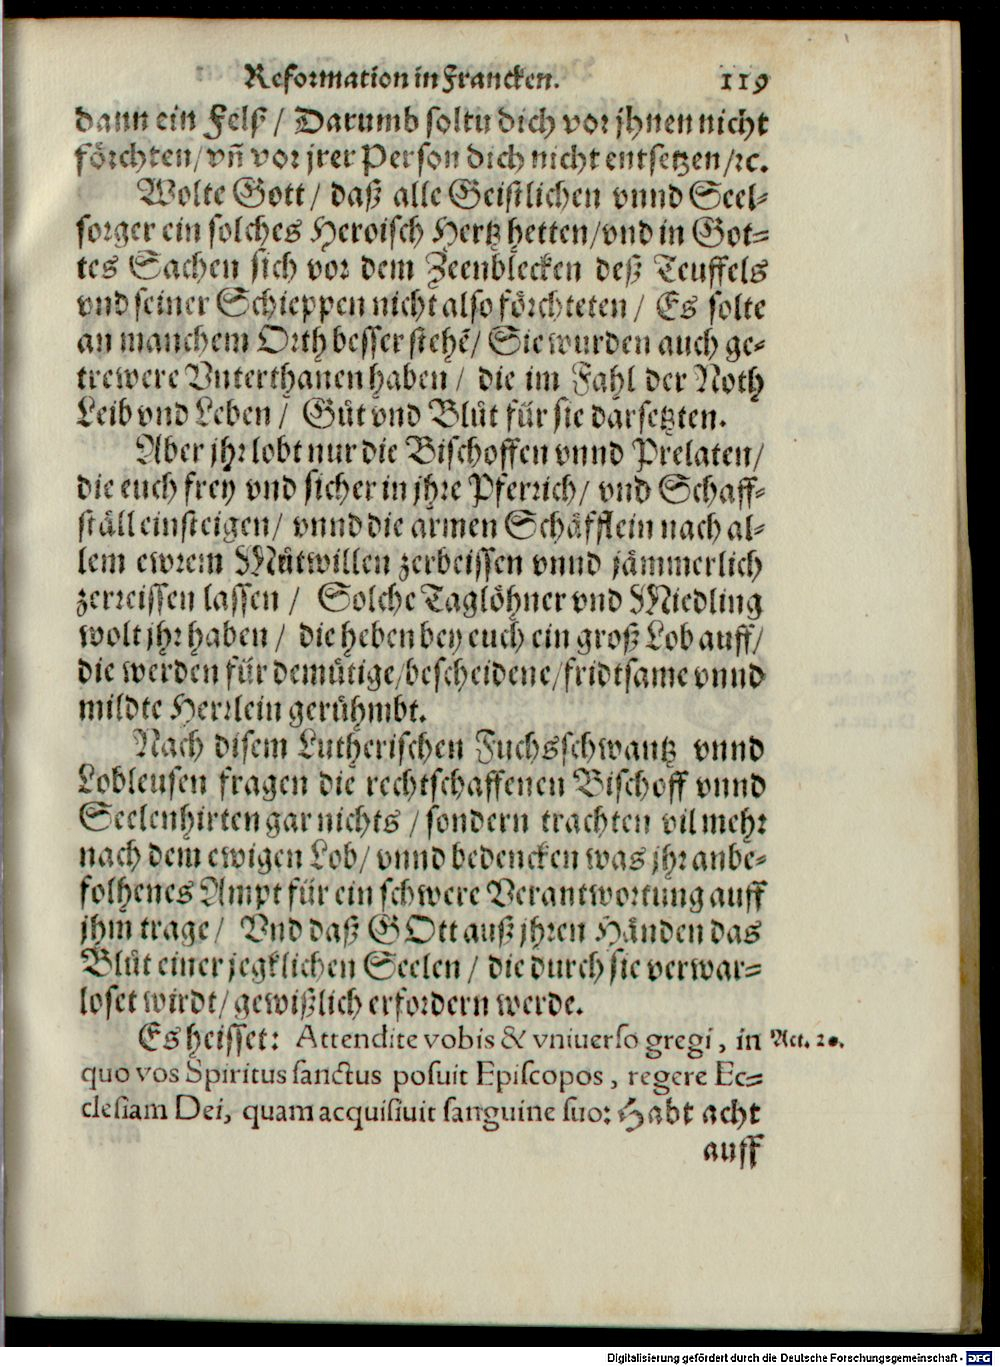 Reformation in Francken. 119
dann ein Felß / Darumb soltu dich vor jhnen nicht
förchten / vñ vor jrer Person dich nicht entsetzen / ꝛc.
Wolte Gott / daß alle Geistlichen vnnd Seel-
sorger ein solches Heroisch Hertz hetten / vnd in Got-
tes Sachen sich vor dem Zeenblecken deß Teuffels
vnd seiner Schieppen nicht also förchteten / Es solte
an manchem Orth besser stehẽ / Sie wurden auch ge-
trewere Vnterthanen haben / die im Fahl der Noth
Leib vnd Leben / Gůt vnd Blůt für sie darsetzten.
Aber jhr lobt nur die Bischoffen vnnd Prelaten /
die euch frey vnd sicher in jhre Pferrich / vnd Schaff-
ställ einsteigen / vnnd die armen Schäfflein nach al-
lem ewrem Můtwillen zerbeissen vnnd jämmerlich
zerreissen lassen / Solche Taglöhner vnd Miedling
wolt jhr haben / die heben bey euch ein groß Lob auff /
die werden für demütige / bescheidene / fridtsame vnnd
mildte Herrlein gerühmbt.
Nach disem Lutherischen Fuchsschwantz vnnd
Lobleusen fragen die rechtschaffenen Bischoff vnnd
Seelenhirten gar nichts / sondern trachten vil mehr
nach dem ewigen Lob / vnnd bedencken was jhr anbe-
folhenes Ampt für ein schwere Verantwortung auff
jhm trage / Vnd daß GOtt auß jhren Händen das
Blůt einer jegklichen Seelen / die durch sie verwar-
loset wirdt / gewißlich erfordern werde.
Es heisset: Attendite vobis & vniuerso gregi, in Act. 20.
quo vos Spiritus sanctus posuit Episcopos, regere Ec-
clesiam Dei, quam acquisiuit sanguine suo: Habt acht
auff
Digitalisierung gefördert durch die Deutsche Forschungsgemeinschaft - DFG